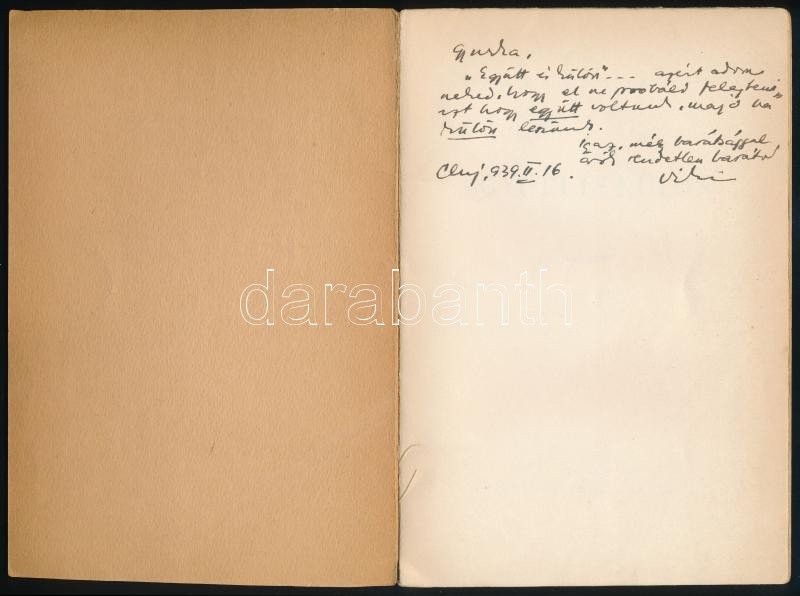 Gyuszka,
„Együtt és külön" --- azért adom
neked, hogy el ne próbáld felejteni
azt hogy együtt voltunk, majd ha
külön leszünk.
Igaz, mély barátsággal
rendetlen barátod
Cluj, 939. II. 16.
darabanth